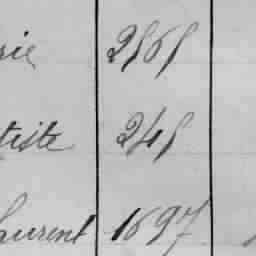 rie 2565
tiste 245
Laurent 1697